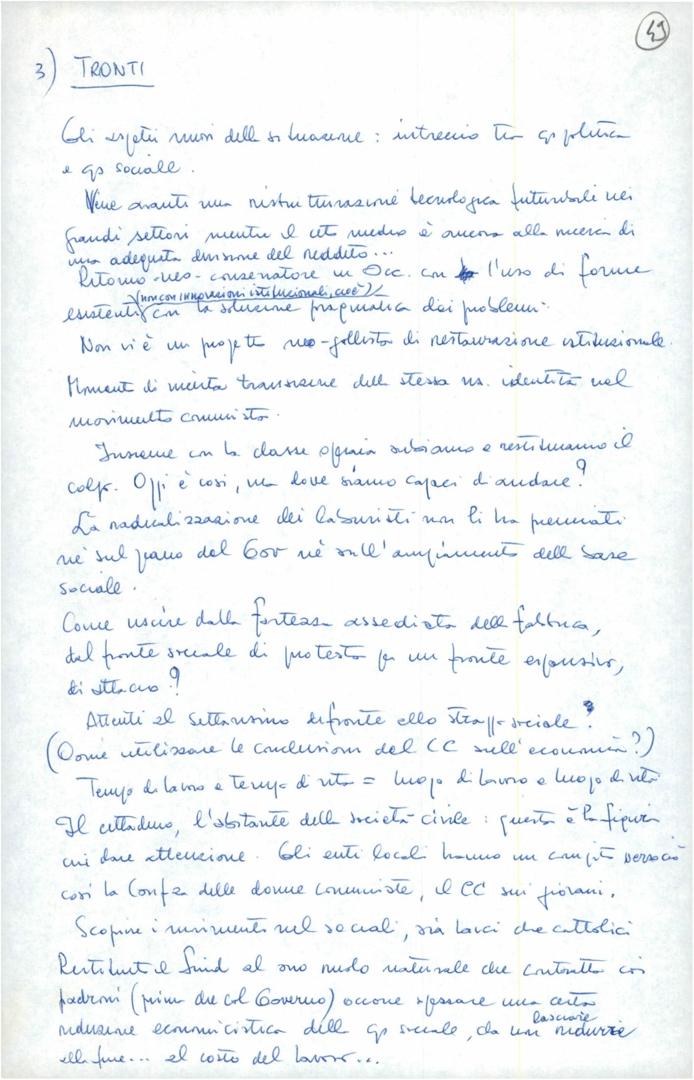 49
3) TRONTI
Gli aspetti nuovi della situazione: intreccio tra qs politica
e qs sociale.
Viene avanti una ristrutturazione tecnologica futuribile nei
grandi settori mentre il ceto medio è ancora alla ricerca di
una adeguata divisione del reddito...
Ritorno neo-conservatore in Occ. con l'uso di forme
(non con innovazioni istituzionali, cioè)
esistenti con la soluzione pragmatica dei problemi.
Non vi è un progetto neo-gollista di restaurazione istituzionale.
Momenti di incerta transizione della stessa ns. identità nel
movimento comunista.
Insieme con la classe operaia subiamo e restituiamo il
colpo. Oggi è così, ma dove siamo capaci di andare?
La radicalizzazione dei laburisti non li ha premiati
nè sul piano del Gov nè sull'ampiamento della base
sociale.
Come uscire dalla fortezza assediata della fabbrica,
dal fronte sociale di protesta per un fronte espansivo,
di attacco?
Attenti al settarismo di fronte allo strappo sociale?
(Come utilizzare le conclusioni del CC sull'economia?)
Tempo di lavoro e tempo di vita = luogo di lavoro e luogo di vita
Il cittadino, l'abitante della società civile: questa è la figura
cui dare attenzione. Gli enti locali hanno un compito verso ciò
così la Confza delle donne comuniste, il CC sui giovani.
Scoprire i movimenti nel sociali, sia laici che cattolici
Restituito il Sind al suo ruolo naturale che contratta coi
padroni (prima che col Governo) occorre spezzare una certa
riduzione economicistica della qs sociale, da lasciare
alla fine... al costo del lavoro...